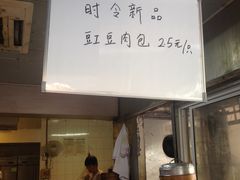 时令新品
豇豆肉包 2.5元/只